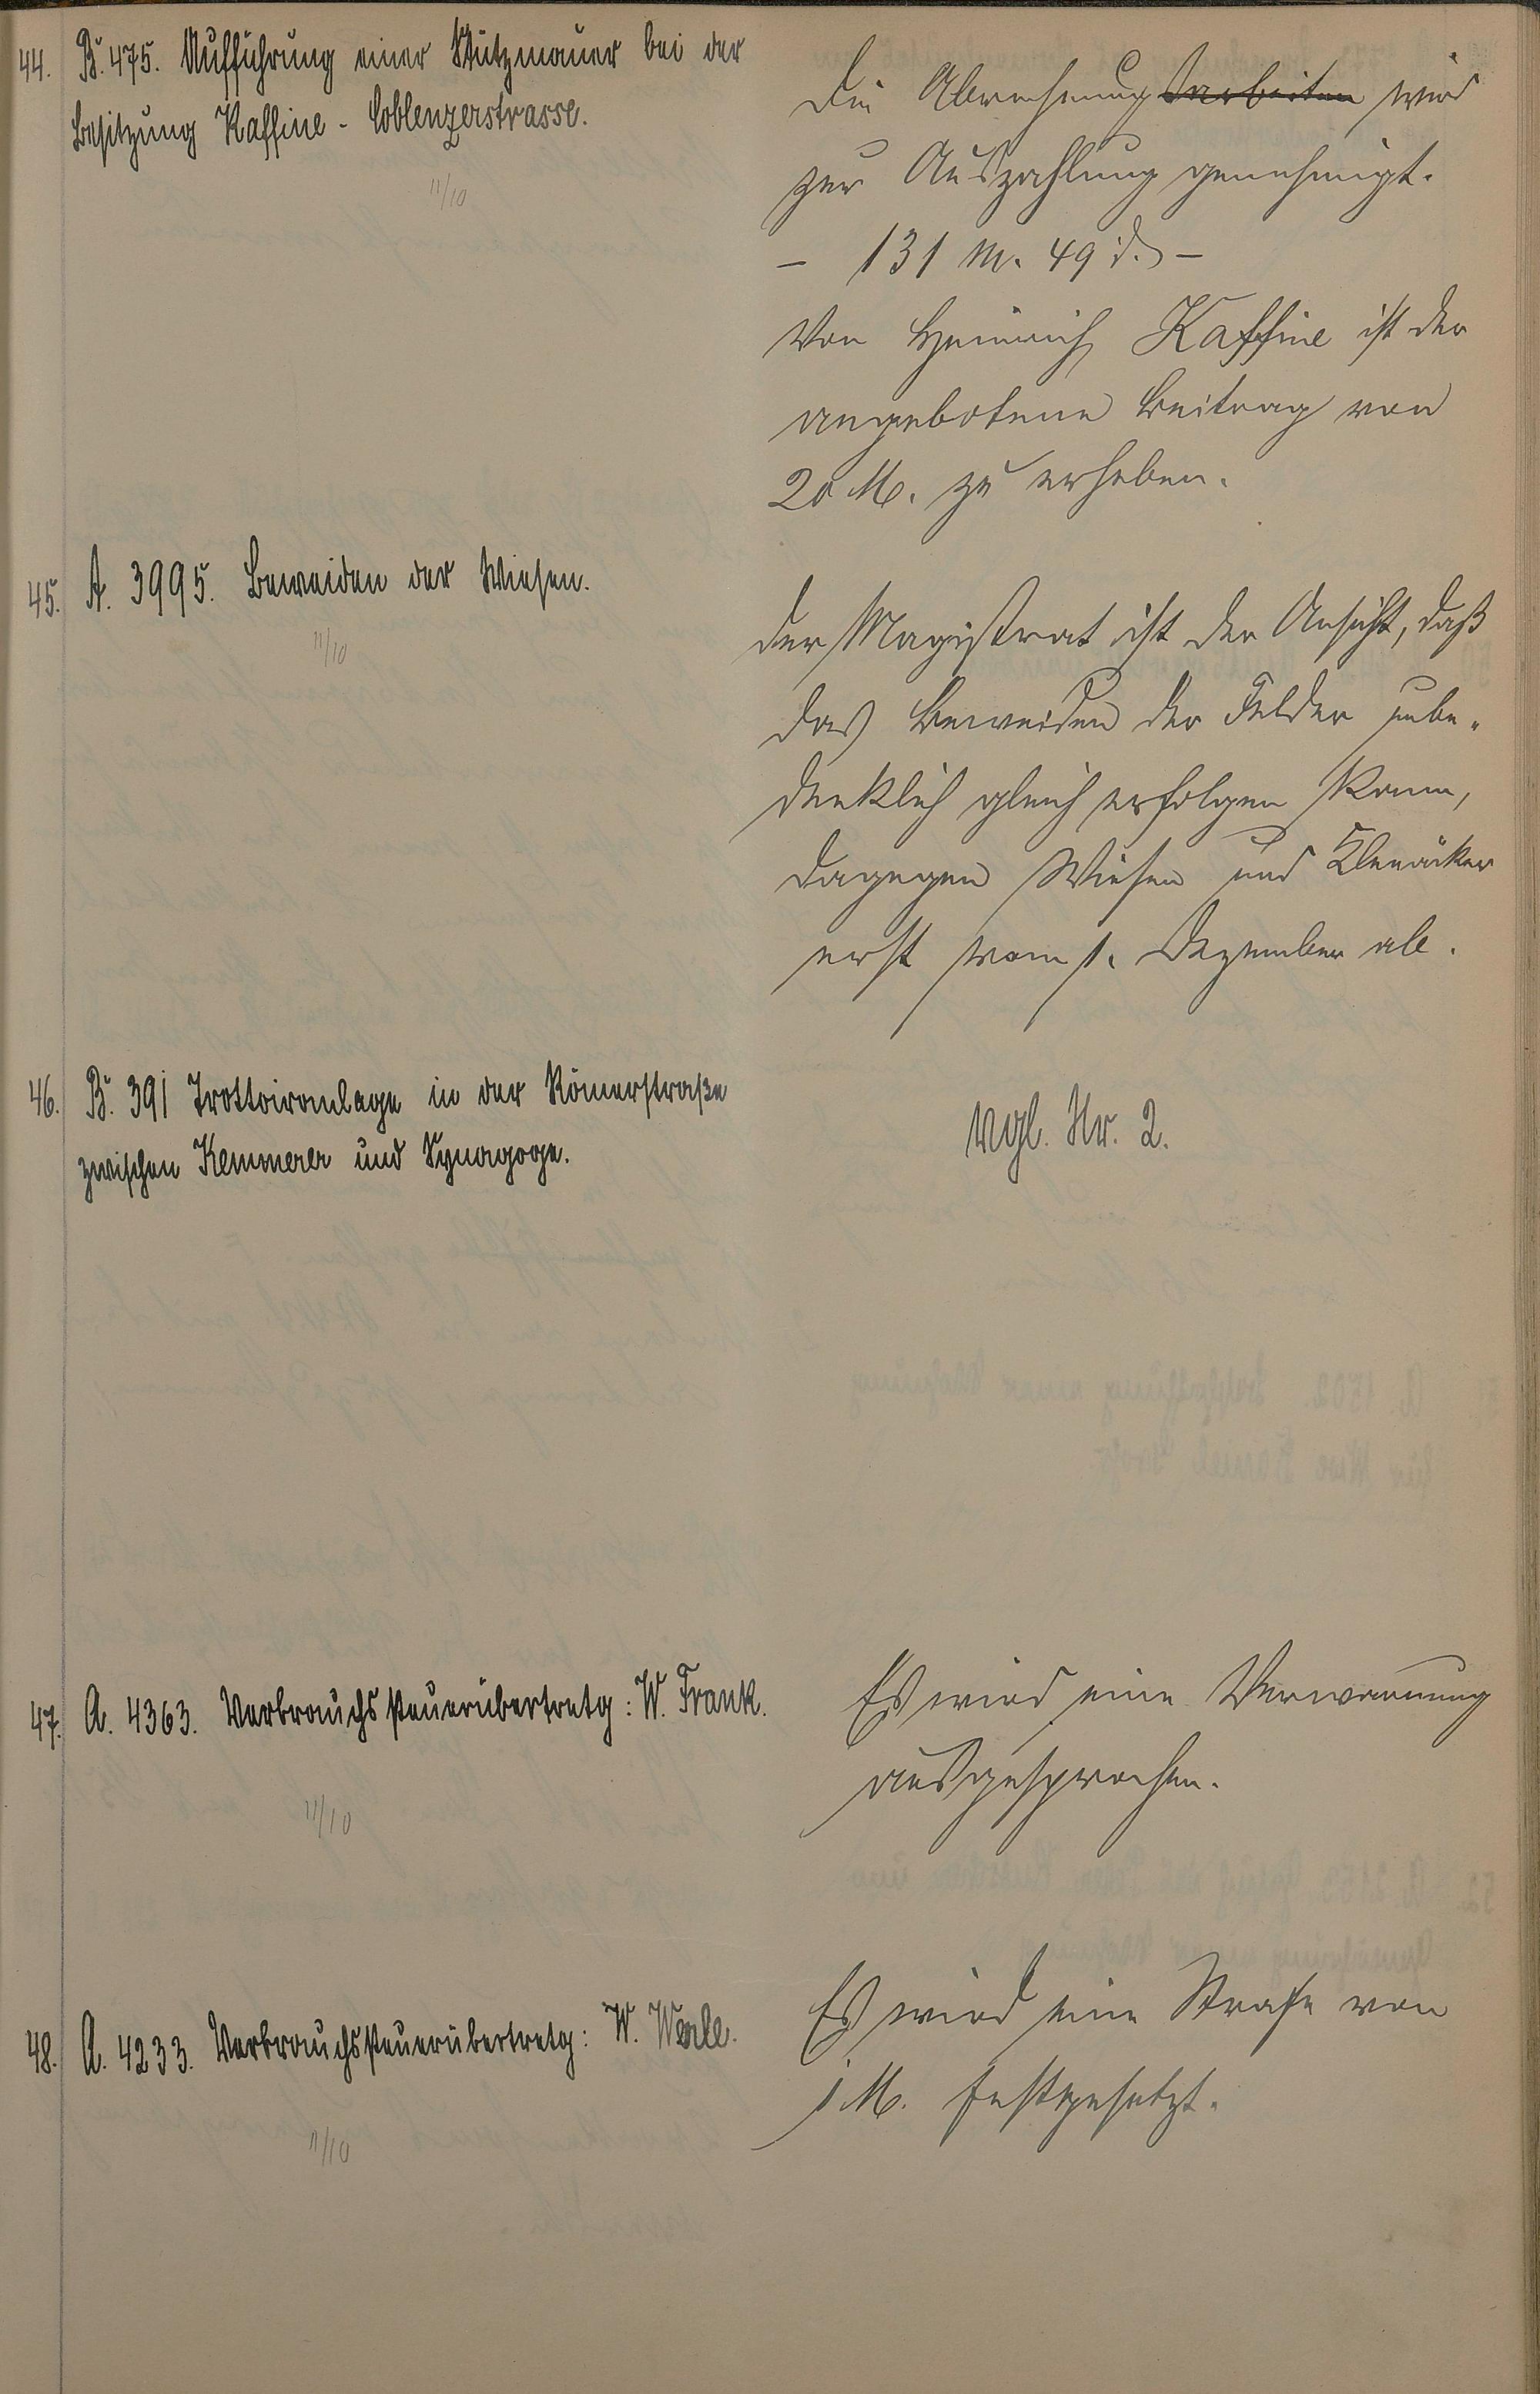 44. B. 475. Aufführung einer Stützmauer bei der
Besitzung Kaffine - Coblenzerstrasse.
11/10
Die Abrechnungsarbeiten wird
zur Auszahlung genehmigt.
- 131 M. 49 d. -
Von Heinrich Kaffine ist der
angebotene Beitrag von
20 M. zu erheben.
45. A. 3995. Beweiden der Wiesen.
11/10
Der Magistrat ist der Ansicht, daß
das Beweiden der Felder unbe-
denklich gleich erfolgen kann,
dagegen Wiesen und Kleeäcker
erst vom 1. Dezember ab.
46. B. 391 Trottoiranlage in der Römerstraße
zwischen Kemmerer und Synagoge.
vgl. Nr. 2.
47. A. 4363. Verbrauchssteuerübertretg: W. Frank.
11/10
Es wird eine Verwarnung
ausgesprochen.
48. A. 4233. Verbrauchssteuerübertretg: W. Werle.
11/10
Es wird eine Strafe von
1 M. festgesetzt.